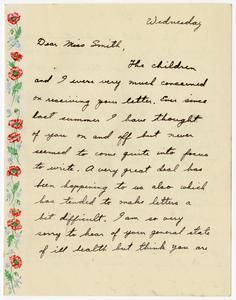 Wednesday
Dear Miss Smith,
The children
and I were very much concerned
on receiving your letter. Ever since
last summer I have thought
of you on and off but never
seemed to come quite into focus
to write. A very great deal has
been happening to us also which
has tended to make letters a
bit difficult. I am so very
sorry to hear of your general state
of ill health but think you are